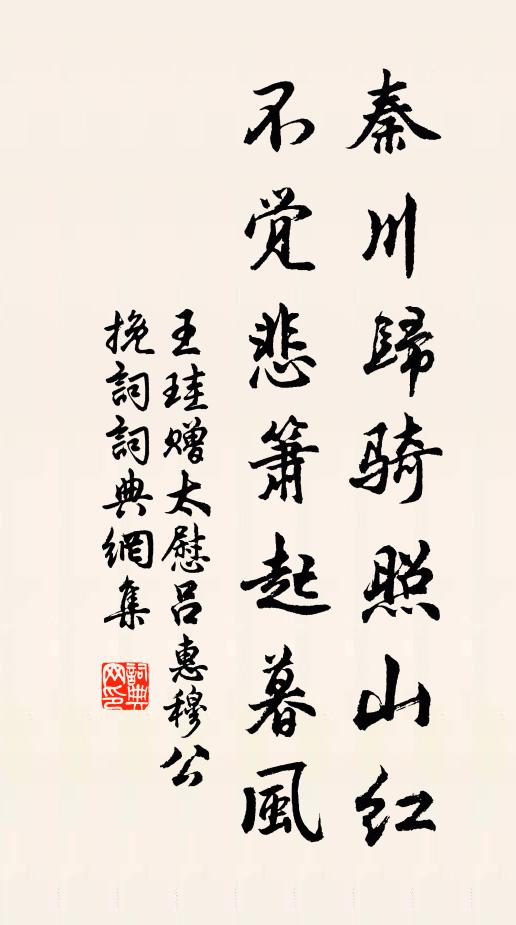 秦川歸骑照山红
不觉悲箫起暮風
王珪赠太慰呂惠穆公
挽詞詞典網集
詞典
网印